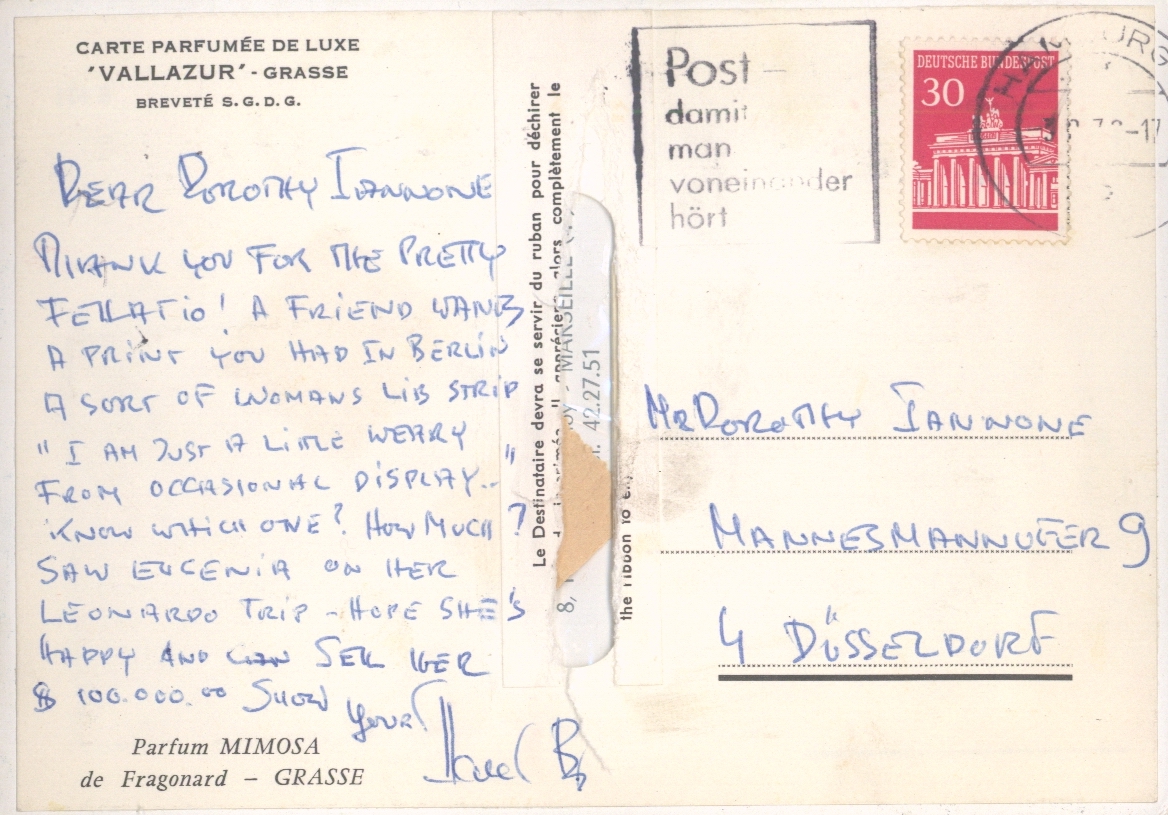 CARTE PARFUMÉE DE LUXE
'VALLAZUR' - GRASSE
BREVETÉ S.G.D.G.
DEAR DOROTHY IANNONE
THANK YOU FOR THE PRETTY
FELLATIO! A FRIEND WANTS
A PRINT YOU HAD IN BERLIN
A SORT OF WOMANS LIB STRIP
"I AM JUST A LITTLE WEARY
FROM OCCASIONAL DISPLAY.."
KNOW WHICH ONE? HOW MUCH?
SAW EUGENIA ON HER
LEONARDO TRIP - HOPE SHE'S
HAPPY AND CAN SELL HER
$ 100.000.00 SHOW
Your
Parfum MIMOSA
de Fragonard – GRASSE
Le Destinataire devra se servir du ruban pour déchirer
alors complètement le
8,
MARSEILLE
42.27.51
the ribbon to
Post -
damit
man
voneinander
hört
DEUTSCHE BUNDESPOST
30
HAMBURG
-17
MR DOROTHY IANNONE
MANNESMANNUFER 9
4 DÜSSELDORF